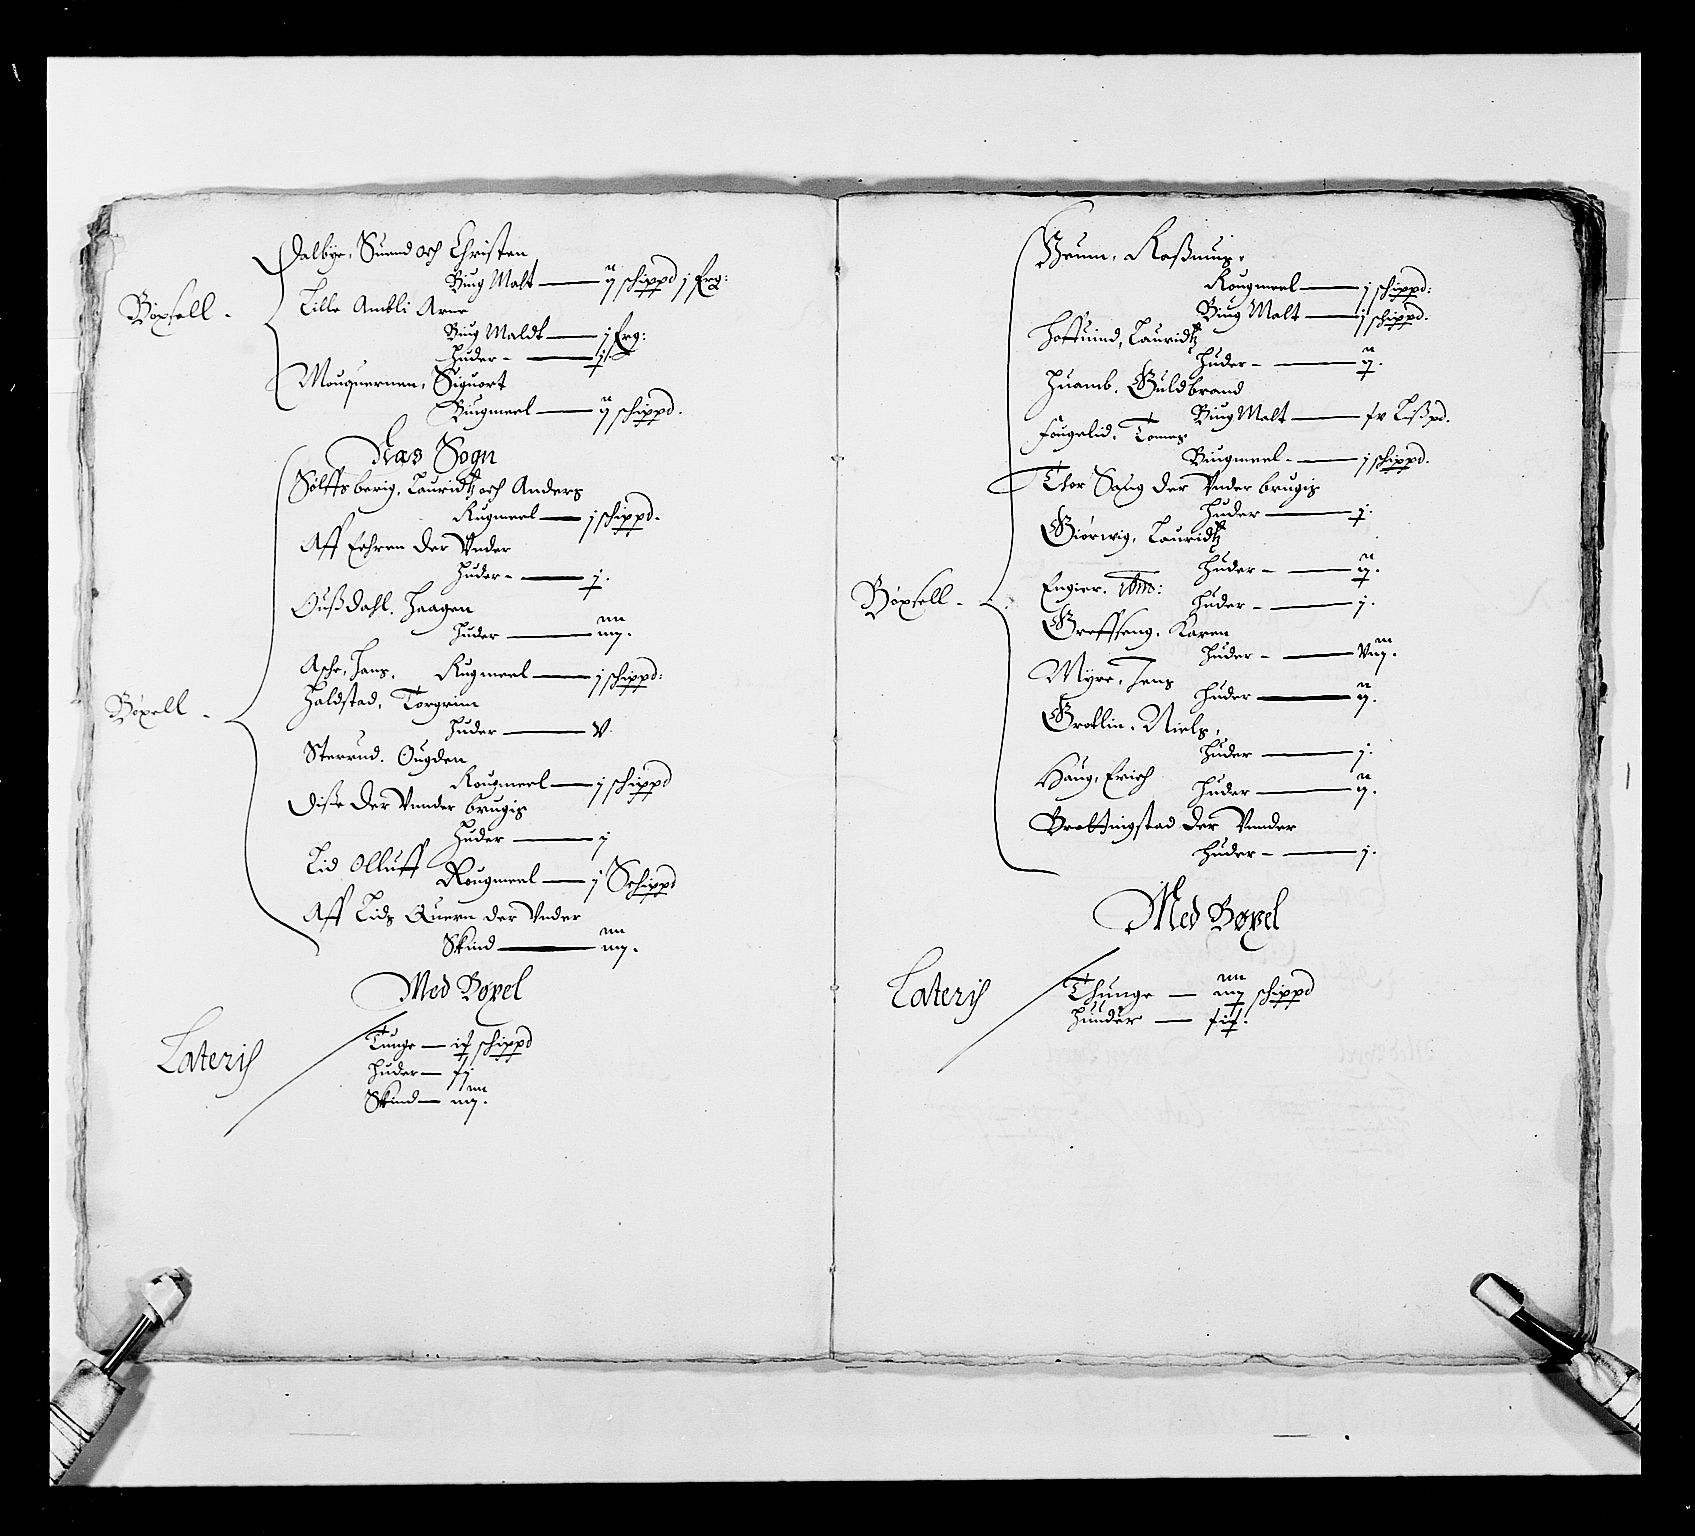 Dalbye, Suend och Christen
Biug Malt — ij schippd j Frg:
Bøxsell -
Lille Ambli Arne
Biug Maldt — j Frg:
Huder - — j
Mouquernen, Siguort
Biugmeel — ij schippd.
Næs Sogn
Sølffsberig, Lauridtz och Anders
Rugmeel — j schippd.
Aff Fehren der Vnder
Huder - — j.
Oußdahl. Haagen
Huder — iiij.
Asche, Hans. Rugmeel — j schippd:
Haldstad, Torgrim
Bøxell -
Huder — V.
Sterrud. Ougden
Rougmeel — j schippd
Diße der Vnnder brugis
Huder — j
Lid Olluff Rougmeel — j Schippd
Aff Lids Quern der Vnder
Skind — iiij.
Med Bøxel
Lateris
Tunge — if schippd
Huder — fj
Skind — iiij.
Rougmeel — j schippd:
Biug Malt — j schippd.
Hoffuind, Lauridtz
Huder - — ij.
Huamb. Guldbrand
Biug Malt — fv Lißpd.
Fougelid, Tomes
Biugmeel - — j schippd.
Thor Saug der Vnder brugis
Huder — j.
Giørwig, Lauridtz
Huder - — ij.
Engier. Huder - — j.
Bøxsell -
Greffseng. Karen
Huder - — Viij.
Myre, Jens
Huder — ij.
Grotlin. Niels,
Huder — j.
Haug, Erich Huder — ij.
Brottingstad der Vnnder
Huder - — j.
Med Bøxel
Lateris
Thunge — iiij schippd
Hunder — fif.